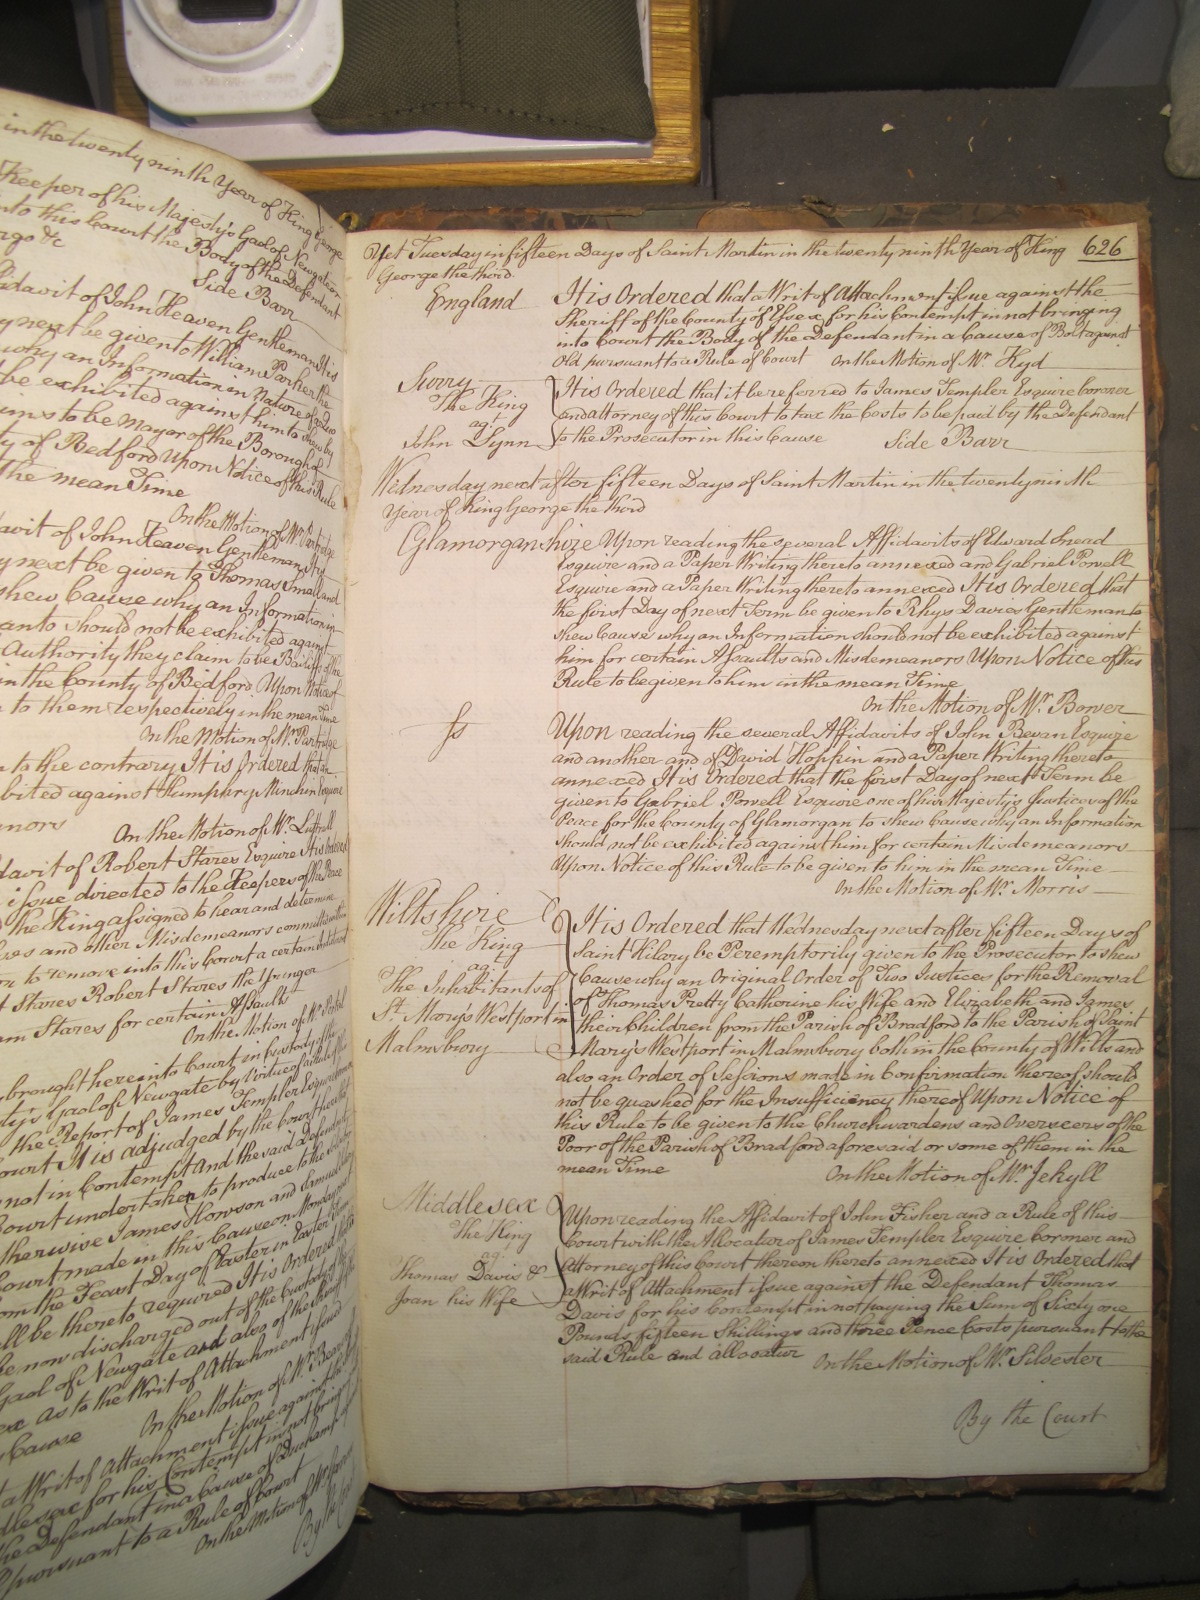 in the twenty ninth Year of King George
Keeper of his Majesty's Gaol of Newgate or
into this Court the Body of the Defendant
Side Barr
idavit of John Heaven Gentleman It is
next be given to William Parker the
why an Information in nature of a Quo
be exhibited against him to shew by
ims to be Mayor of the Borough of
ty of Bedford Upon Notice of this Rule
the mean Time
On the Motion of Mr. Partridge
davit of John Heaven Gentleman It is
y next be given to Thomas Small and
shew Cause why an Information in
anto should not be exhibited against
Authority they claim to be Bailiffs of the
in the County of Bedford Upon Notice of
to them respectively in the mean Time
On the Motion of Mr. Partridge
to the contrary It is Ordered that an
bited against Humphry Minchin Esquire
nors
On the Motion of Mr. Luttrell
davit of Robert Stares Esquire It is Ordered
issue directed to the Keepers of the Peace
the King assigned to hear and determine
and other Misdemeanors committed within
to remove into this Court a certain Indictment
t Stares Robert Stares the Younger
am Stares for certain Assaults
On the Motion of Mr.
brought here into Court in Custody of the
ty's Gaol of Newgate by virtue of a Rule of this
the Report of James Templer Esquire
Court It is adjudged by the Court that the
not in Contempt And the said Defendant
Court undertaken to produce to the
therwise James Howson and Samuel
Court made in this Cause on Monday
om the Feast Day of Easter in Easter Term
ll be thereto required It is Ordered that
be now discharged out of the Custody of the
Gaol of Newgate and also of the Sheriff of
ex as to the Writ of Attachment issued
Cause
On the Motion of Mr. Bearcroft
a Writ of Attachment issue against the
dlesex for his Contempt in not bringing
the Defendant in a Cause of Duchamp
pursuant to a Rule of Court
On the Motion of Mr.
By the Court
Yet Tuesday in fifteen Days of Saint Martin in the twenty ninth Year of King 626
George the third
England It is Ordered that a Writ of Attachment issue against the
Sheriff of the County of Essex for his Contempt in not bringing
into Court the Body of the Defendant in a Cause of Bolt against
Old pursuant to a Rule of Court On the Motion of Mr. Kyd
Surry It is Ordered that it be referred to James Templer Esquire Coroner
The King and Attorney of this Court to tax the Costs to be paid by the Defendant
agt.
John Lynn to the Prosecutor in this Cause Side Barr
Wednesday next after fifteen Days of Saint Martin in the twenty ninth
Year of King George the third
Glamorganshire Upon reading the several Affidavits of Edward Snead
Esquire and a Paper Writing thereto annexed and Gabriel Powell
Esquire and a Paper Writing thereto annexed It is Ordered that
the first Day of next Term be given to Rhys Davies Gentleman to
shew Cause why an Information should not be exhibited against
him for certain Assaults and Misdemeanors Upon Notice of this
Rule to be given to him in the mean Time
On the Motion of Mr. Bower
ss Upon reading the several Affidavits of John Bevan Esquire
and another and of David Hopkin and a Paper Writing thereto
annexed It is Ordered that the first Day of next Term be
given to Gabriel Powell Esquire one of his Majesty's Justices of the
Peace for the County of Glamorgan to shew Cause why an Information
should not be exhibited against him for certain Misdemeanors
Upon Notice of this Rule to be given to him in the mean Time
On the Motion of Mr. Morris
Wiltshire It is Ordered that Wednesday next after fifteen Days of
The King Saint Hilary be Peremptorily given to the Prosecutor to shew
agt. Cause why an Original Order of Two Justices for the Removal
The Inhabitants of of Thomas Pretty Catherine his Wife and Elizabeth and James
St. Marys Westport in their Children from the Parish of Bradford to the Parish of Saint
Malmsbury Mary's Westport in Malmsbury both in the County of Wilts and
also an Order of Sessions made in Confirmation thereof should
not be quashed for the Insufficiency thereof Upon Notice of
this Rule to be given to the Churchwardens and Overseers of the
Poor of the Parish of Bradford aforesaid or some of them in the
mean Time On the Motion of Mr. Jekyll
Middlesex Upon reading the Affidavit of John Fisher and a Rule of this
The King Court with the Allocatur of James Templer Esquire Coroner and
agt. Attorney of this Court thereon thereto annexed It is Ordered that
Thomas Davis & a Writ of Attachment issue against the Defendant Thomas
Joan his Wife Davis for his Contempt in not paying the Sum of Sixty one
Pounds fifteen Shillings and three Pence Costs pursuant to the
said Rule and allocatur On the Motion of Mr. Silvester
By the Court